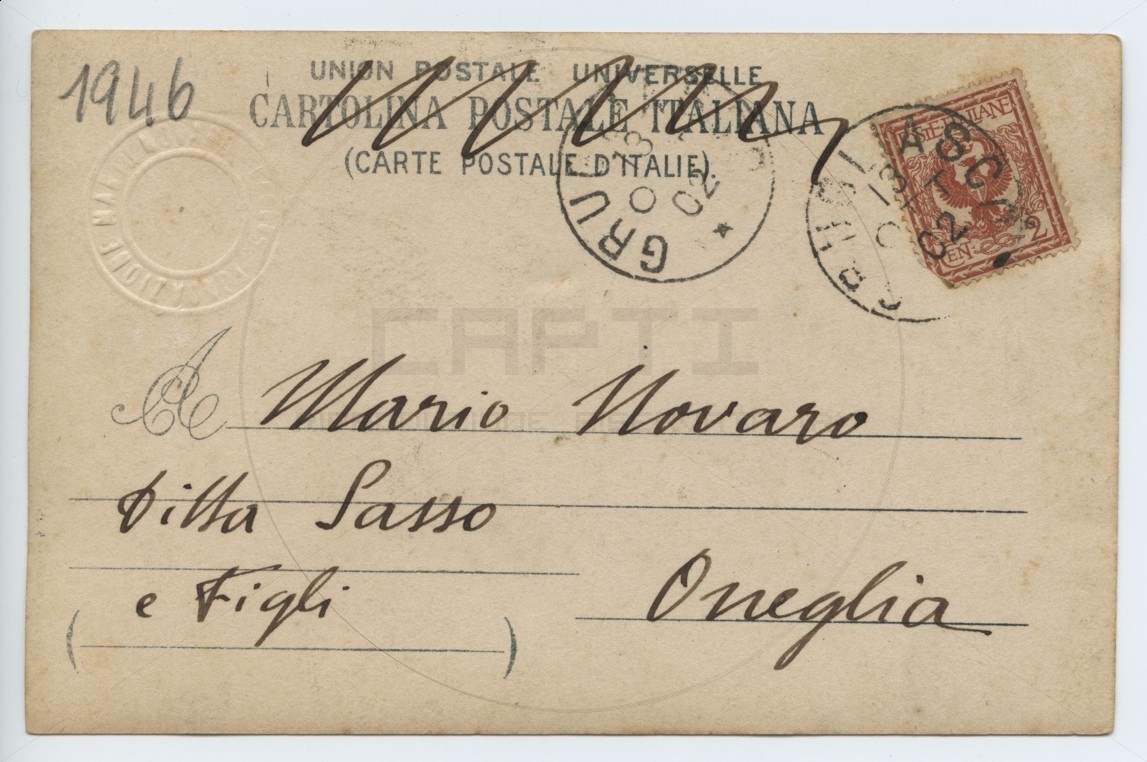 1946
UNION POSTALE UNIVERSELLE
CARTOLINA POSTALE ITALIANA
(CARTE POSTALE D'ITALIE).
GRU
13
02
ASC
13
02
POSTE ITALIANE
CEN 2
CAPTI
A Mario Novaro
Ditta Sasso
e Figli
Oneglia